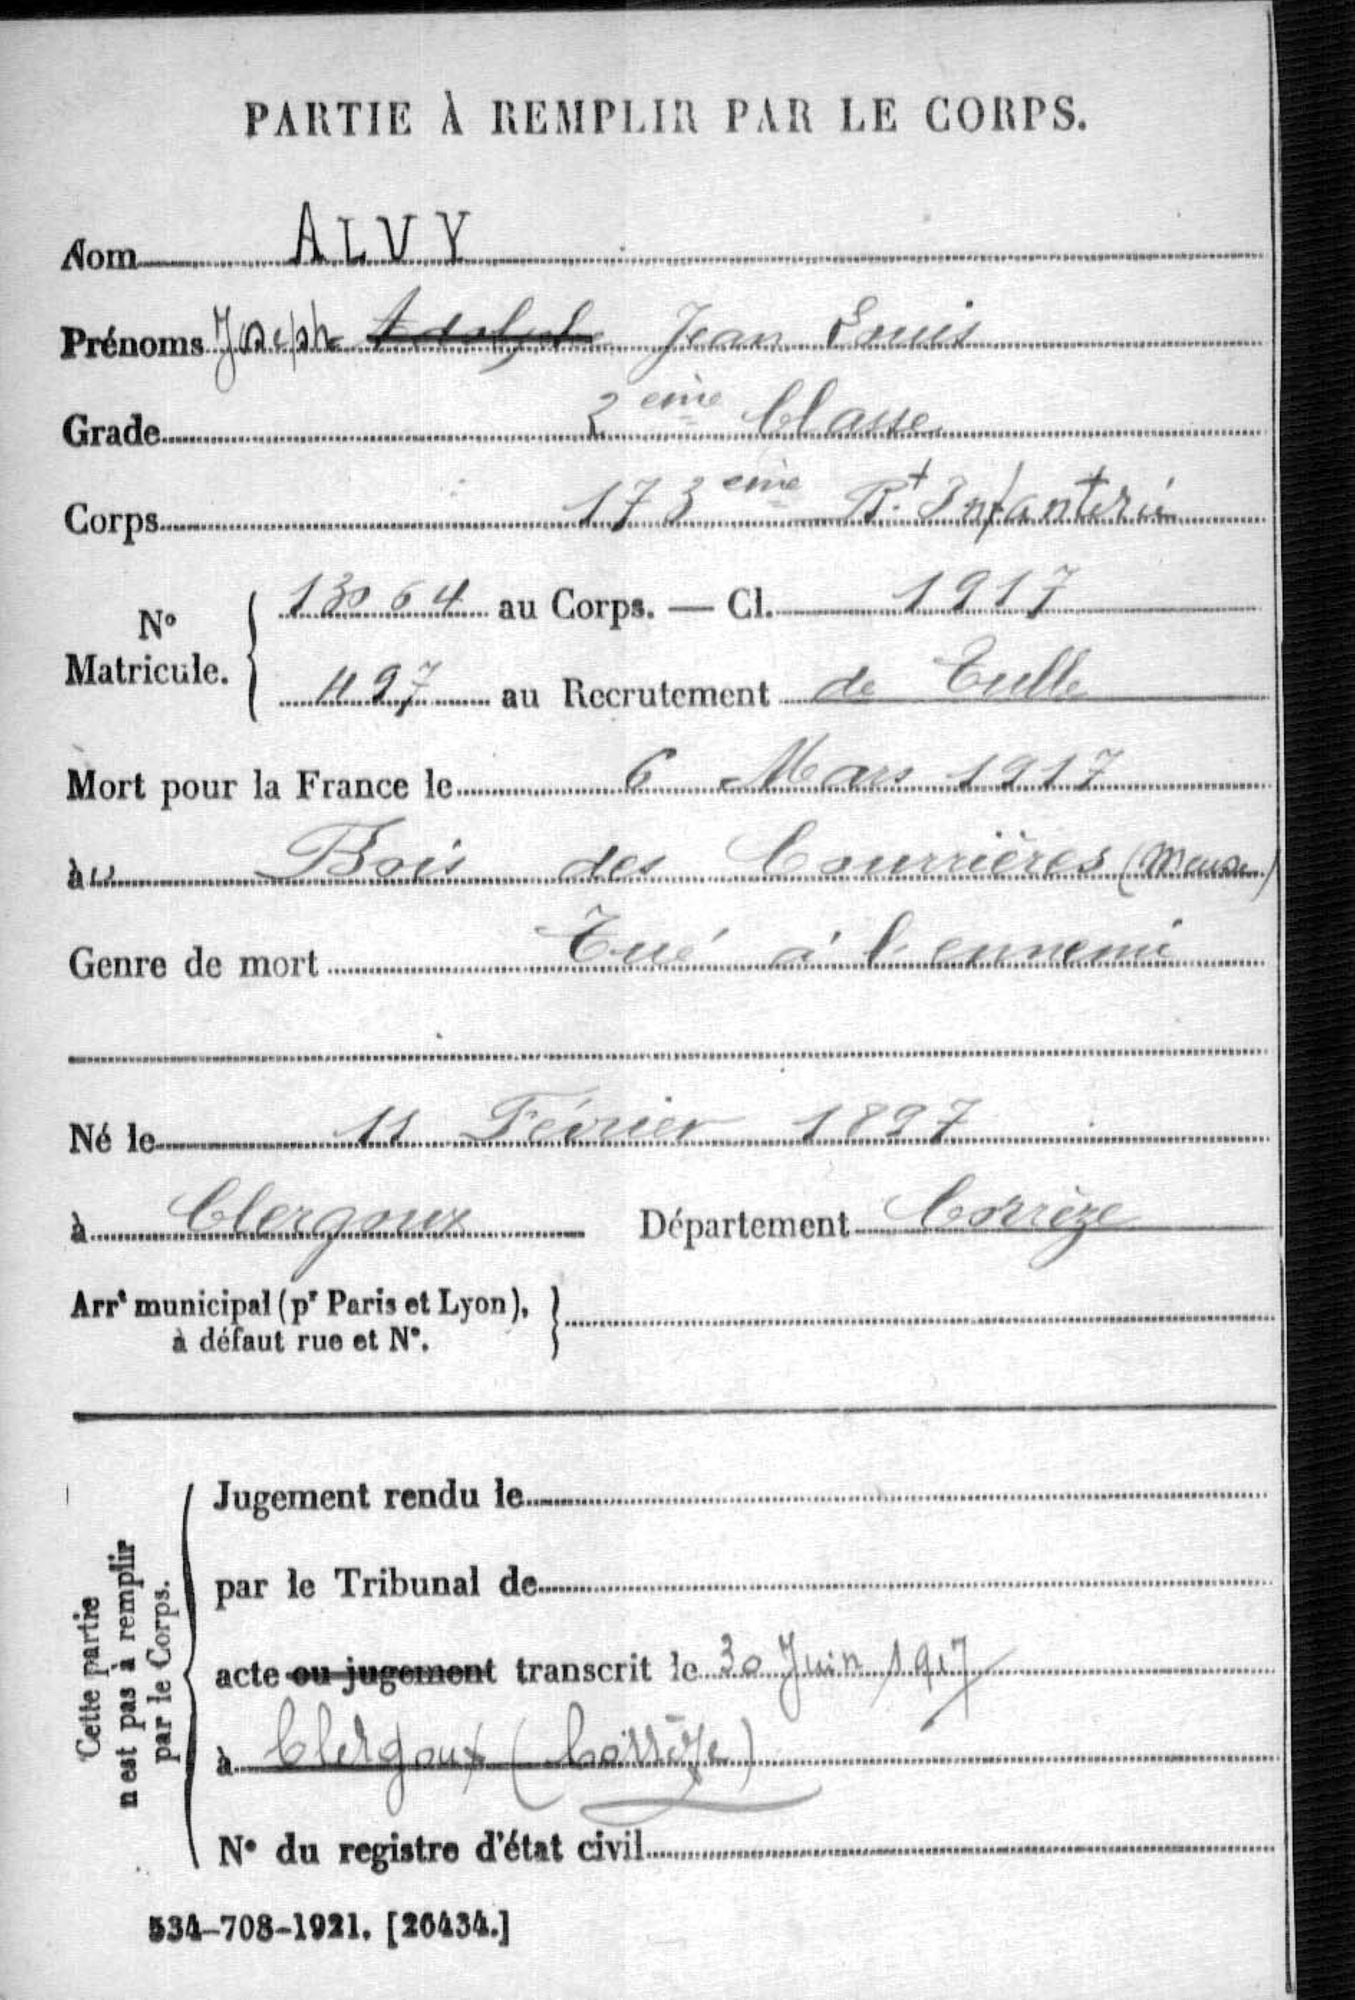 PARTIE À REMPLIR PAR LE CORPS.
Nom ALVY
Prénoms Joseph Adolphe Jean Louis
Grade 2 ème Classe
Corps 173 ème Rt Infanterie
N° Matricule. 13064 au Corps. — Cl. 1917
1197 au Recrutement de Tulle
Mort pour la France le 6 Mars 1917
à Bois des Courrières (Meuse)
Genre de mort Tué à l'ennemi
Né le 11 Février 1897
à Clergoux Département Corrèze
Arrt municipal (pr Paris et Lyon),
à défaut rue et N°.
Cette partie
n'est pas à remplir
par le Corps.
Jugement rendu le
par le Tribunal de
acte ou jugement transcrit le 30 Juin 1917
à Clergoux (Corrèze)
N° du registre d'état civil
534-708-1921. [26434.]